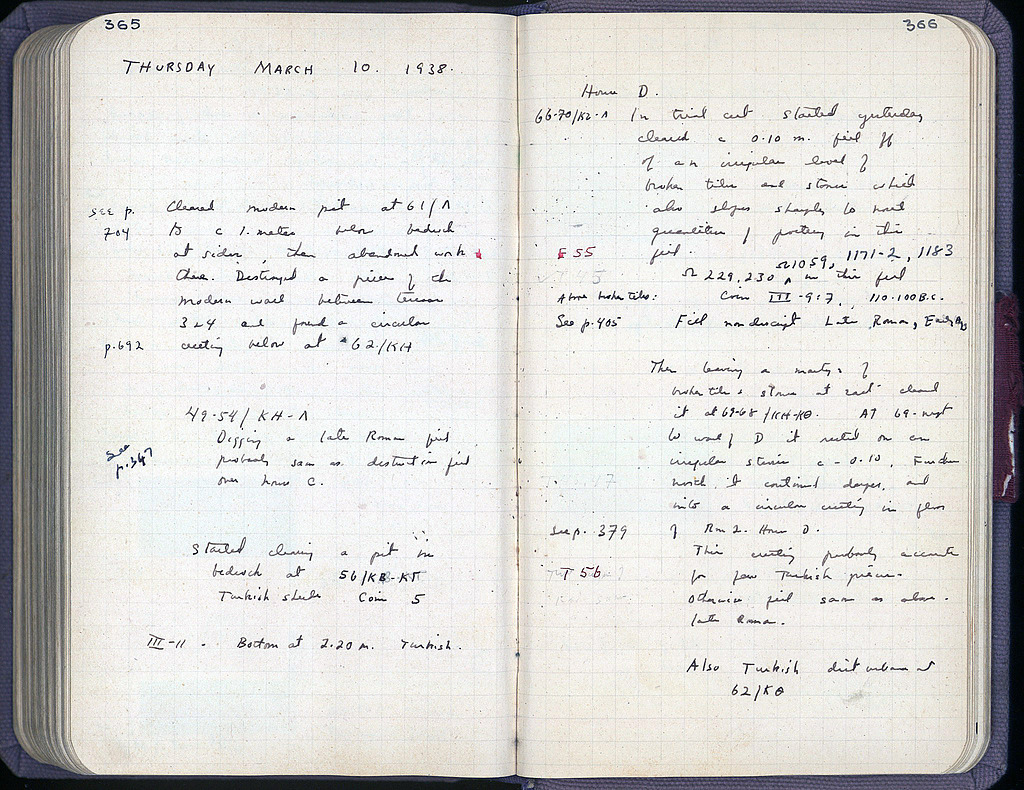 365
THURSDAY MARCH 10. 1938.
see p. Cleared modern pit at 61/Λ
704 to c 1. meter below bedrock
at sides, then abandoned work
there. Destroyed a piece of the
modern wall between terraces
3 & 4 and found a circular
p.692 cutting below at 62/ΚΗ
49-54/ΚΗ-Λ
Digging a late Roman fill
See p.367 probably same as destruction fill
over house C.
Started clearing a pit in
bedrock at 56/ΚΒ-ΚΓ
Turkish sherds Coin 5
III-11 . Bottom at 2.20 m. Turkish.
366
House D.
66-70/ΚΖ-Λ In trial cut started yesterday
cleared c 0.10 m. fill off
of an irregular level of
broken tiles and stones which
also slopes sharply to north
quantities of pottery in this
E 55 fill.
Ω 1059, 1171-2, 1183
Ω 229, 230 ∧ in this fill
Above broken tiles: Coin III-9:7, 110-100 B.C.
See p.405 Fill nondescript Late Roman, Early Byz
Then leaving a mass of
broken tiles & stones at east cleared
it at 69-68/ΚΗ-ΚΘ. At 69-next
to wall of D it rested on an
irregular c-0.10. Further
north, it continued deeper, and
into a circular cutting in floor
See p. 379 of Rm 2. House D.
This cutting probably accounts
T 56 for few Turkish pieces.
Otherwise fill same as above.
late Roman.
Also Turkish disturbance at
62/ΚΘ